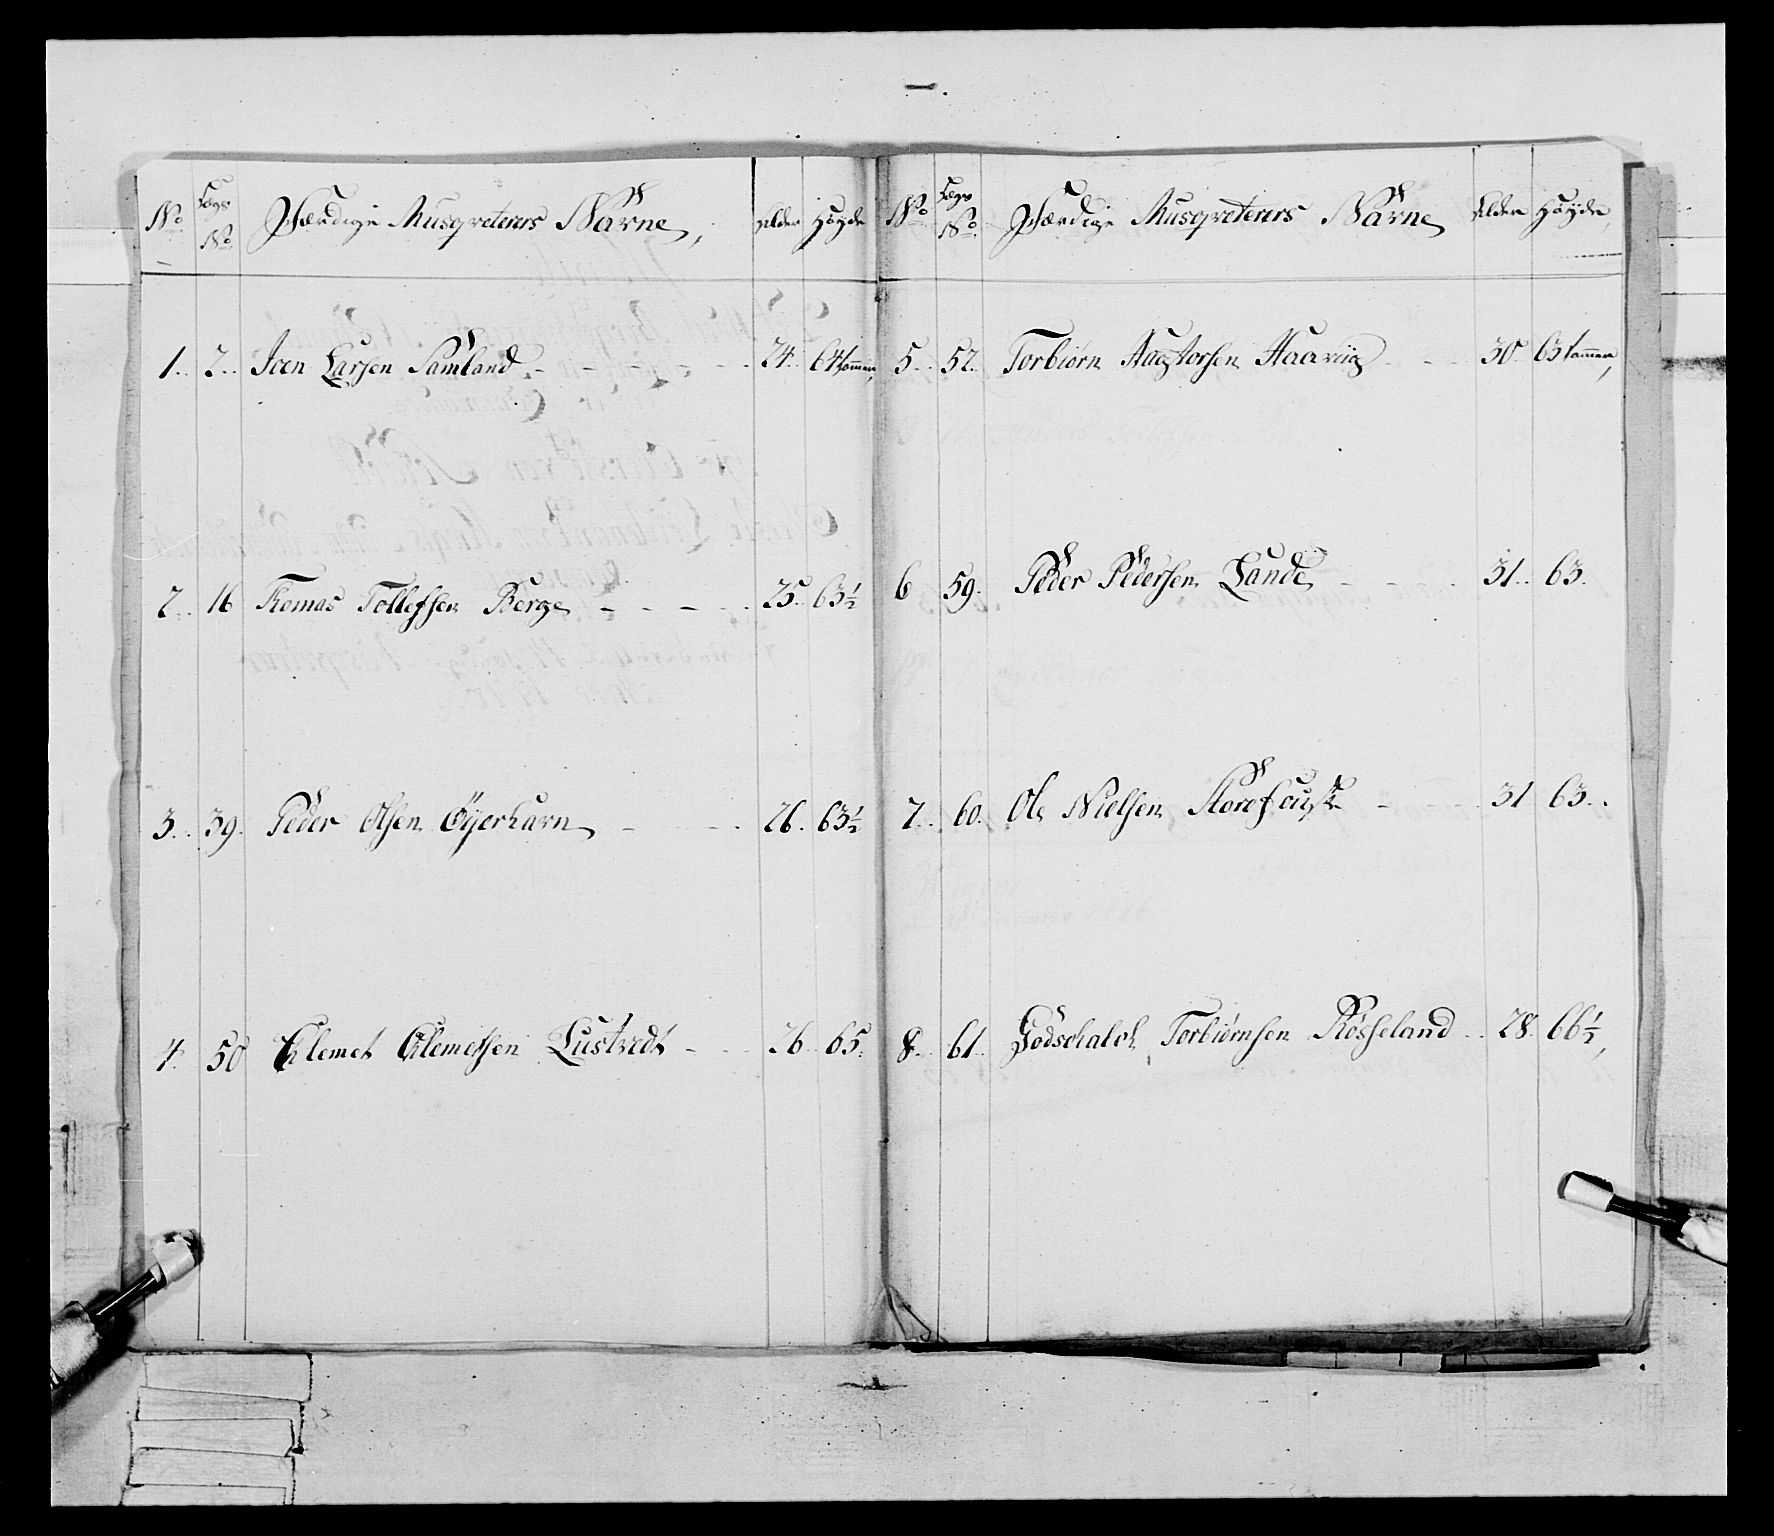 No Lægs No Færdige Musqveterers Nafne, Alder Høyde
1. 2. Joen Larsen Samland 24. 64 tommer,
2. 16 Thomas Tollefsen Berge 25. 63½
3. 39. Peder Olsen Øyerhavn 26. 63½
4. 50 Clemet Clemetsen Lustvedt 26 65.
No Lægs No Færdige Musqveterers Nafne Alder Høyde,
5. 52. Torbiørn Haarviig 30. 63 tommer,
6 59. Peder Pedersen Lande 31. 63.
7. 60. Ole Nielsen 31 63.
8. 61. Godschalch Torbiørnsen Røsseland 28. 66½,